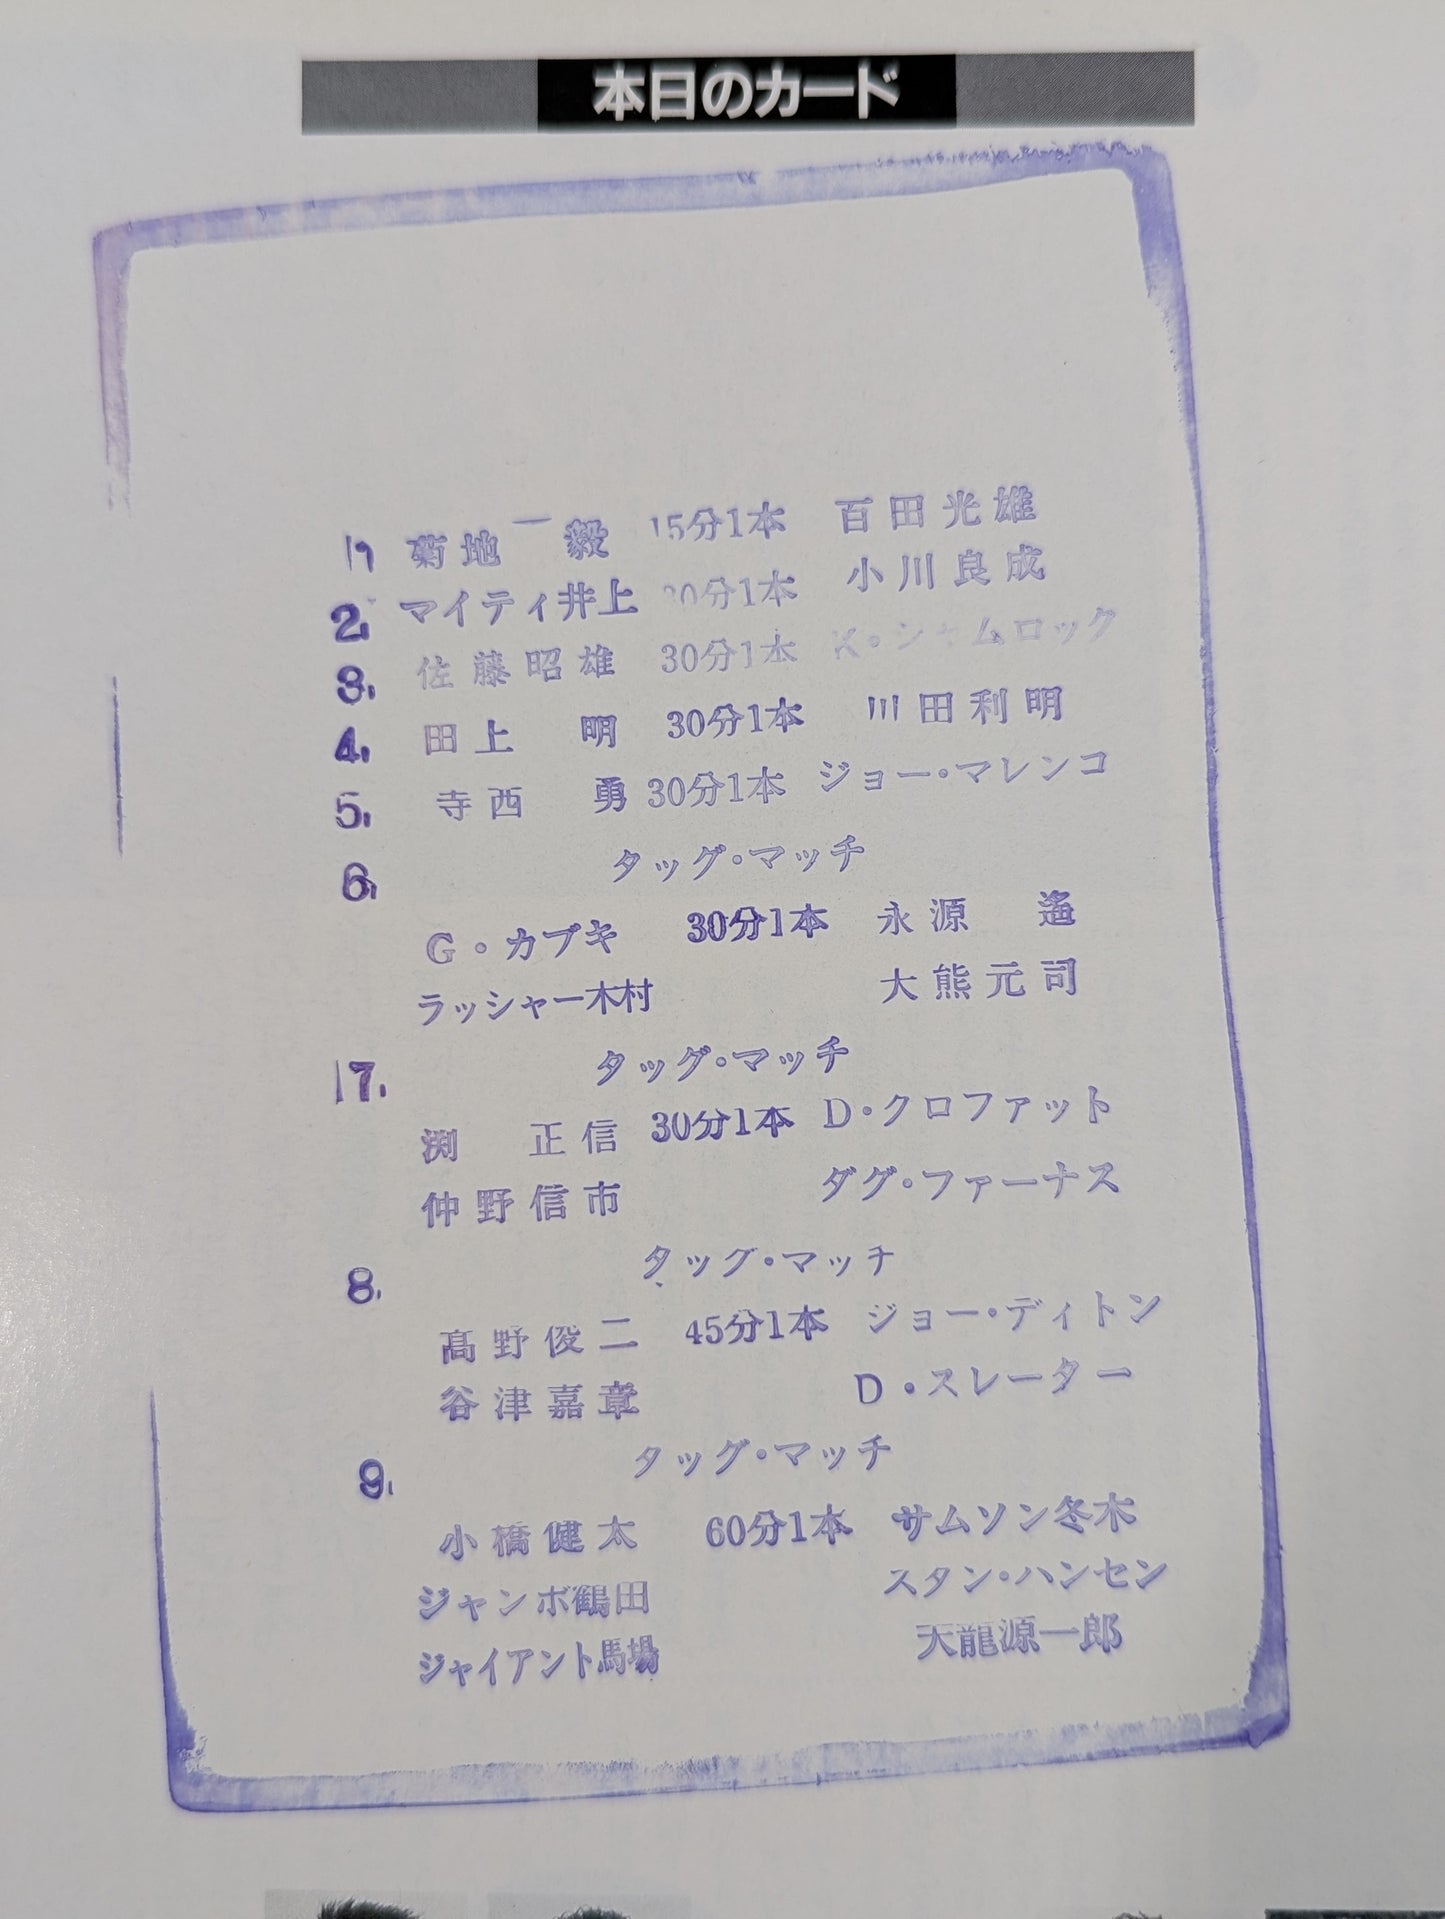 本日のカード
1. 菊地 毅 15分1本 百田光雄
2. マイティ井上 30分1本 小川良成
3. 佐藤昭雄 30分1本 K・シャムロック
4. 田上 明 30分1本 川田利明
5. 寺西 勇 30分1本 ジョー・マレンコ
6. タッグ・マッチ
G・カブキ 30分1本 永源 遙
ラッシャー木村 大熊元司
7. タッグ・マッチ
渕 正信 30分1本 D・クロファット
仲野信市 ダグ・ファーナス
8. タッグ・マッチ
髙野俊二 45分1本 ジョー・ディトン
谷津嘉章 D・スレーター
9. タッグ・マッチ
小橋健太 60分1本 サムソン冬木
ジャンボ鶴田 スタン・ハンセン
ジャイアント馬場 天龍源一郎